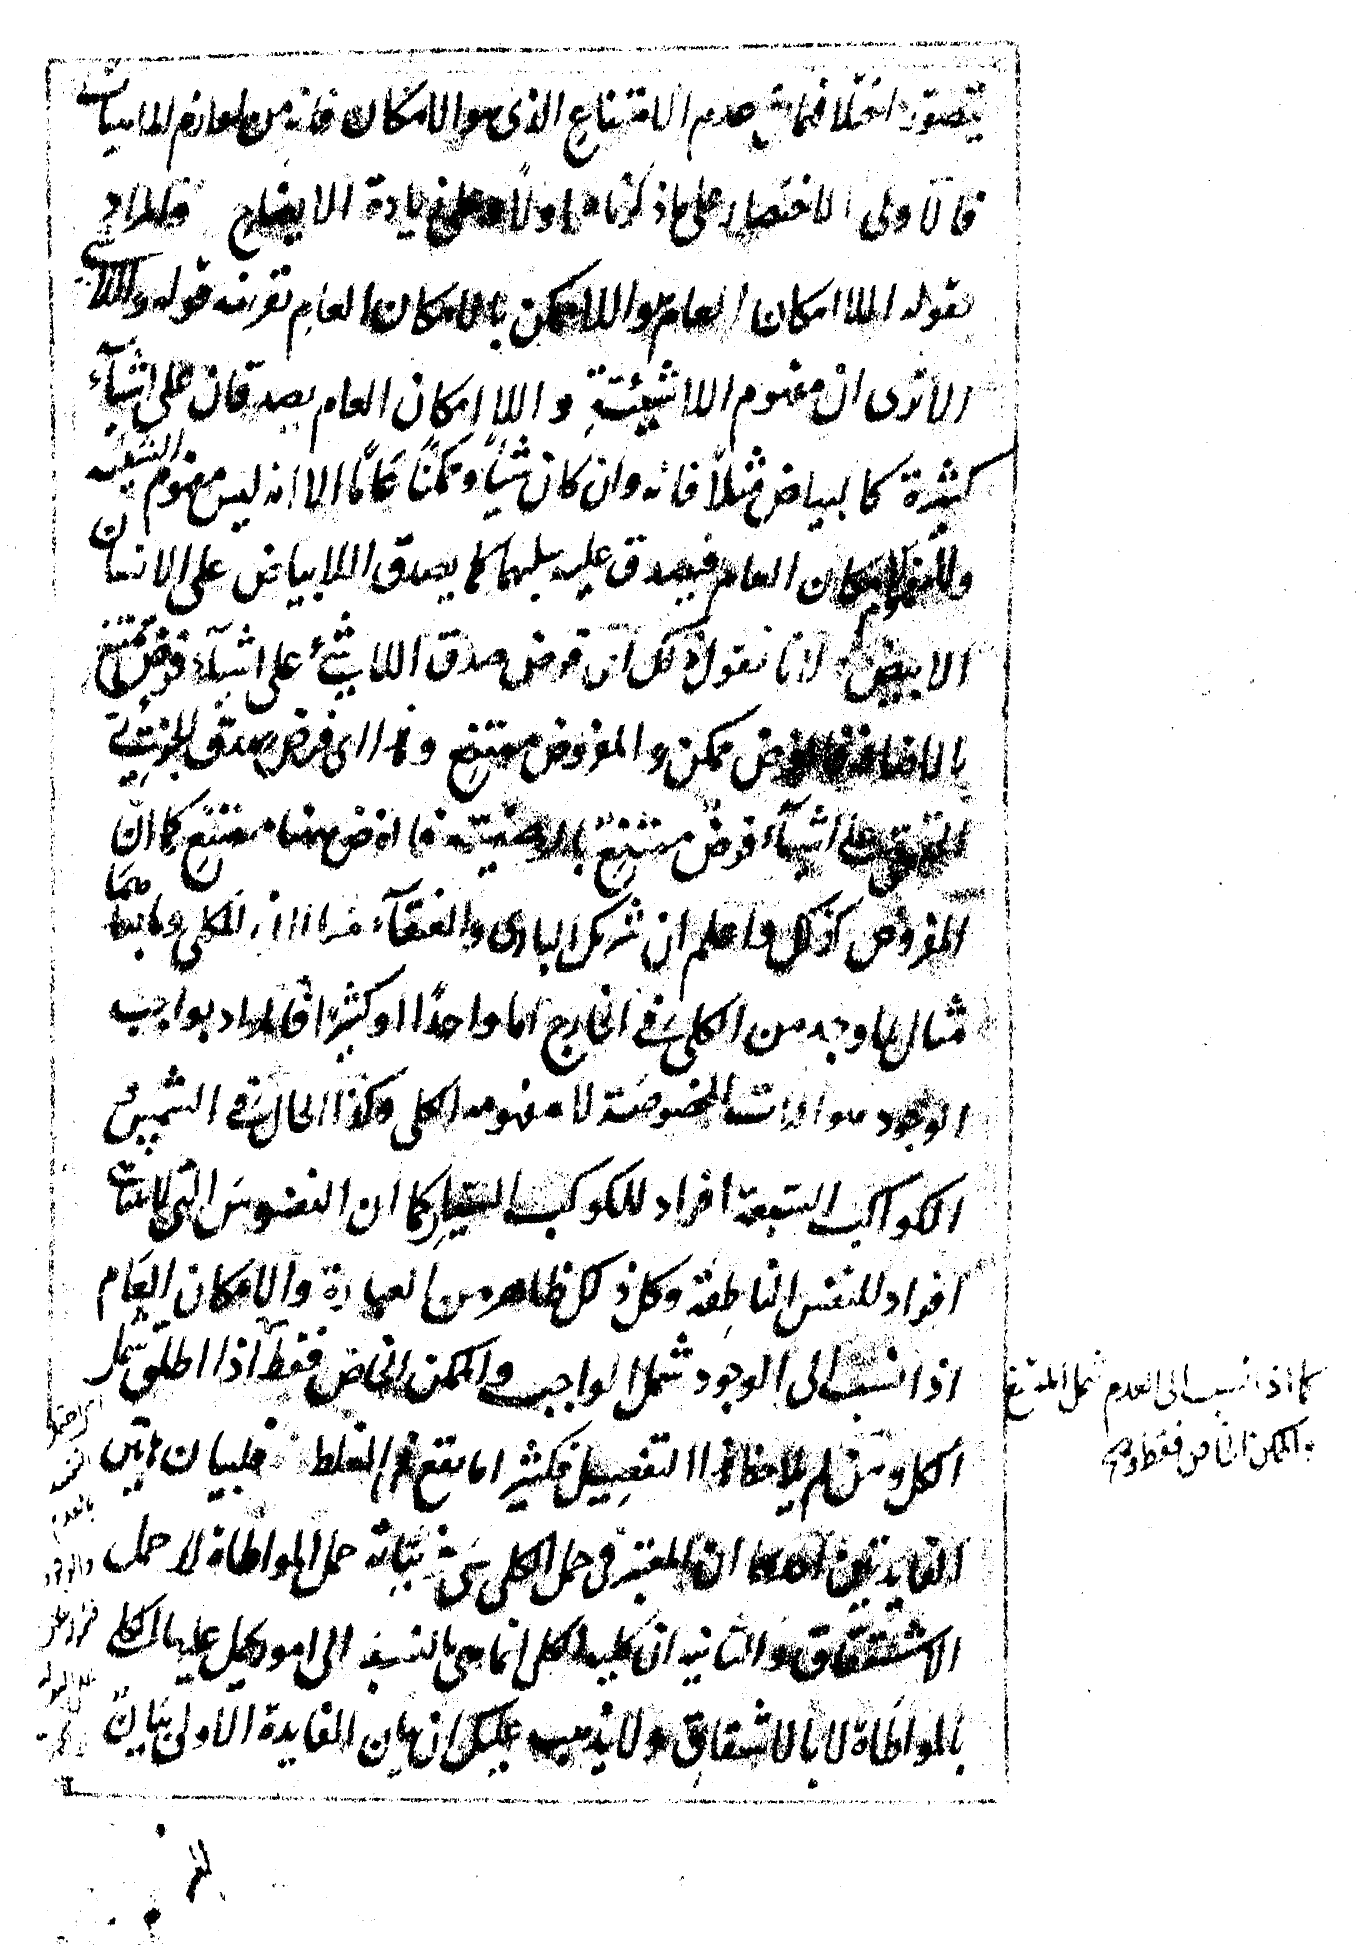 يتصور اختلافها في عدم الامتناع الذي هو الامكان فانه من لوازم الماهيات
فالاولى الاختصار على ما ذكرناه اولا وعلى زيادة الايضاح فالمراد
بقوله اللاامكان العام هو اللاممكن بالامكان العام بقرينة قوله واللاشئ
الا ترى ان مفهوم اللاشيئية واللاامكان العام يصدقان على اشياء
كثيرة كالبياض مثلا فانه وان كان شيئا وممكنا عاما الا انه ليس مفهوم الشيئية
العام فيصدق عليه سلبهما كما يصدق اللابياض على الانسان
الابيض لانا نقول كل اى فرض صدق اللاشئ على اشياء فرض ممتنع
بالاضافة فالفرض ممكن والمفروض ممتنع وهذا اى فرض صدق الجزئى
الحقيقى على اشياء فرض ممتنع بالوصفية فالفرض ههنا ممتنع كما ان
المفروض كذلك واعلم ان شريك البارى والعنقاء للكلى وما بعدهما
مثال لما وجد من الكلى فى الخارج اما واحدا او كثيرا فالمراد بواجب
الوجود هو الذات المخصوصة لا مفهومه الكلى وكذا الحال فى الشمس و
الكواكب السبعة افراد للكوكب السيار كما ان النفوس التى لا تتناهى
افراد للنفس الناطقة وكل ذلك ظاهر من العبارة والامكان العام
اذا نسب الى الوجود شمل الواجب والممكن الخاص فقط اذا اطلق شمل
الكل ومن لم يلاحظ هذا التفصيل فكثيرا ما يقع فى الغلط فلبيان هاتين
الفايدتين ان المعتبر فى حمل الكلى على جزئياته حمل المواطاة لا حمل
الاشتقاق والثانية ان كلية الكلى انما هى بالنسبة الى امور يحمل عليها الكلى
بالمواطاة لا بالاشتقاق ولا يذهب عليك ان بيان الفايدة الاولى بيان
كما اذا نسب الى العدم شمل الممتنع
والممكن الخاص فقط